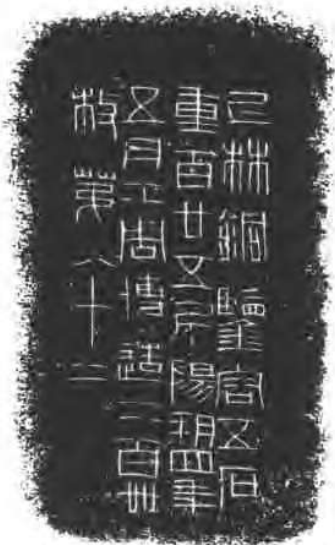 上林銅鑒容五石
重百廿五斤陽朔四年
五月工周博造二百卌
枚第八十二